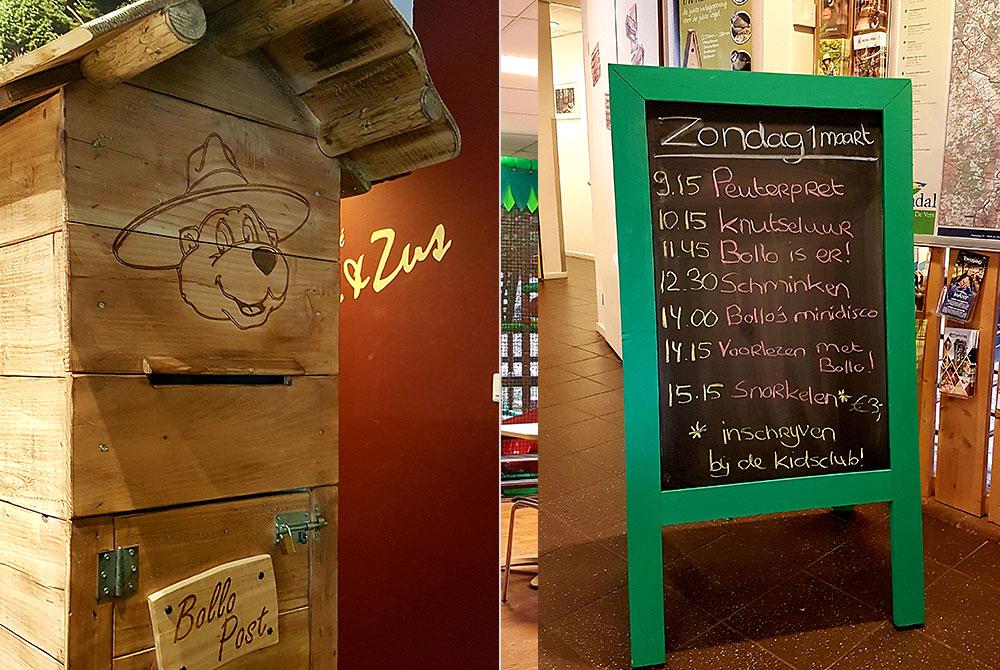 & Zus
Bollo
Post.
Zondag 1 maart
9.15 Peuterpret
10.15 Knutseluur
11.45 Bollo is er!
12.30 Schminken
14.00 Bollo's minidisco
14.15 Voorlezen met
Bollo!
15.15 Snorkelen* €3,-
* inschrijven
bij de kidsclub!